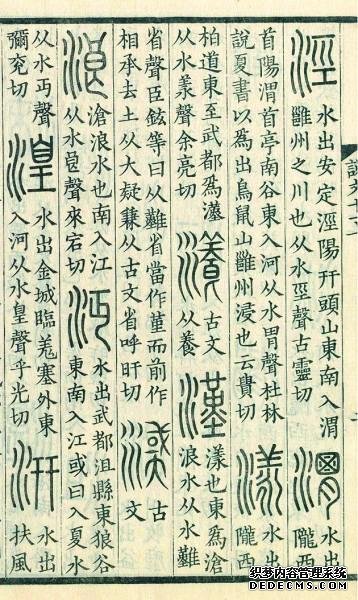 涇水出安定涇陽幵頭山東南入渭
雝州之川也从水巠聲古靈切
渭水出
隴西
首陽渭首亭南谷東入河从水胃聲杜林
說夏書以爲出鳥鼠山雝州浸也云貴切
漾水出
隴西
柏道東至武都爲漢
从水羕聲余亮切
瀁古文
从養
漢漾也東爲滄
浪水从水難
省聲臣鉉等曰从難省當作堇而前作
相承去土从大疑兼从古文省呼旰切
古
文
浪滄浪水也南入江
从水良聲來宕切
沔水出武都沮縣東狼谷
東南入江或曰入夏水
从水丏聲
彌兖切
湟水出金城臨羌塞外東
入河从水皇聲乎光切
汧水出
扶風
织梦内容管理系统
DEDECMS.COM